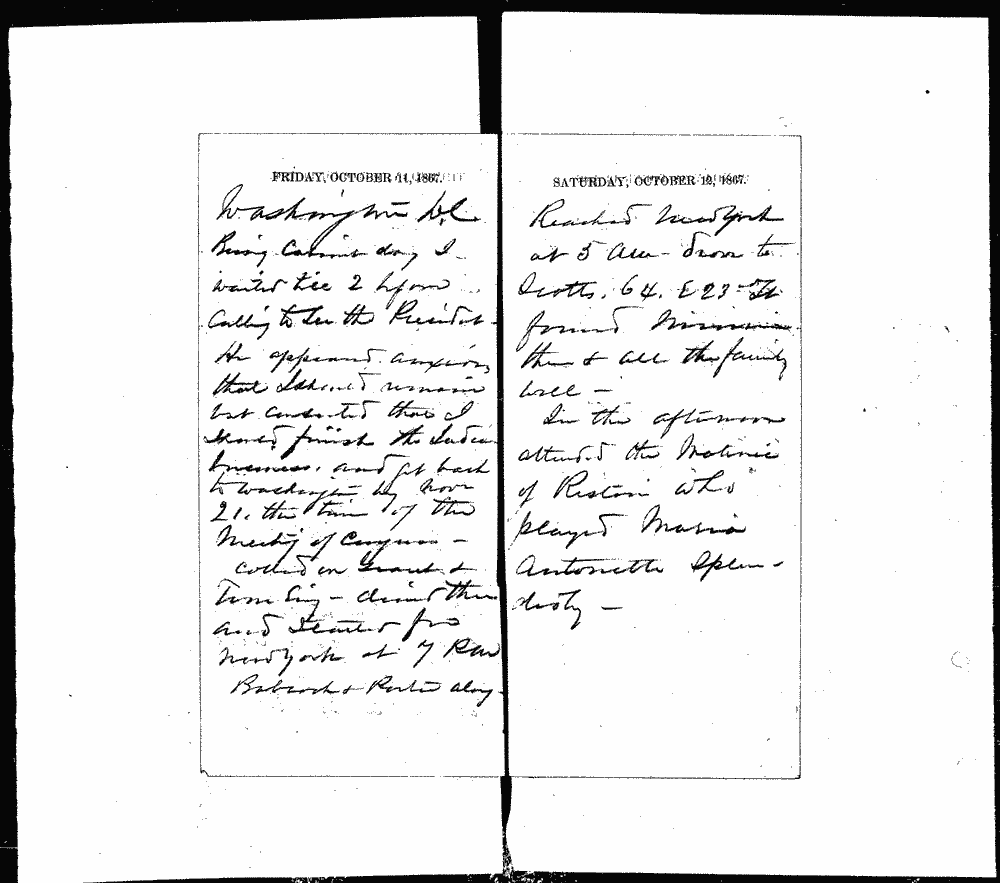 FRIDAY, OCTOBER 11, 1867.
Washington D.C
Being Cabinet day I
waited till 2 before
Calling to See the President -
He appeared anxious
that I should remain
but consented that I
should finish the Indian
business. and get back
to Washington by Nov
21. the time of the
Meeting of Congress -
Called on Grant &
Tom Ewing - dined there
and Started for
New York at 7 P.M
Babcock & Porter along -
SATURDAY, OCTOBER 12, 1867.
Reached New York
at 5 am - drove to
Scotts. 64. E 23 - St
found
them & all the family
well -
In the afternoon
attended the Matinee
of Ristori who
played Maria
Antoinette Splen -
didly -